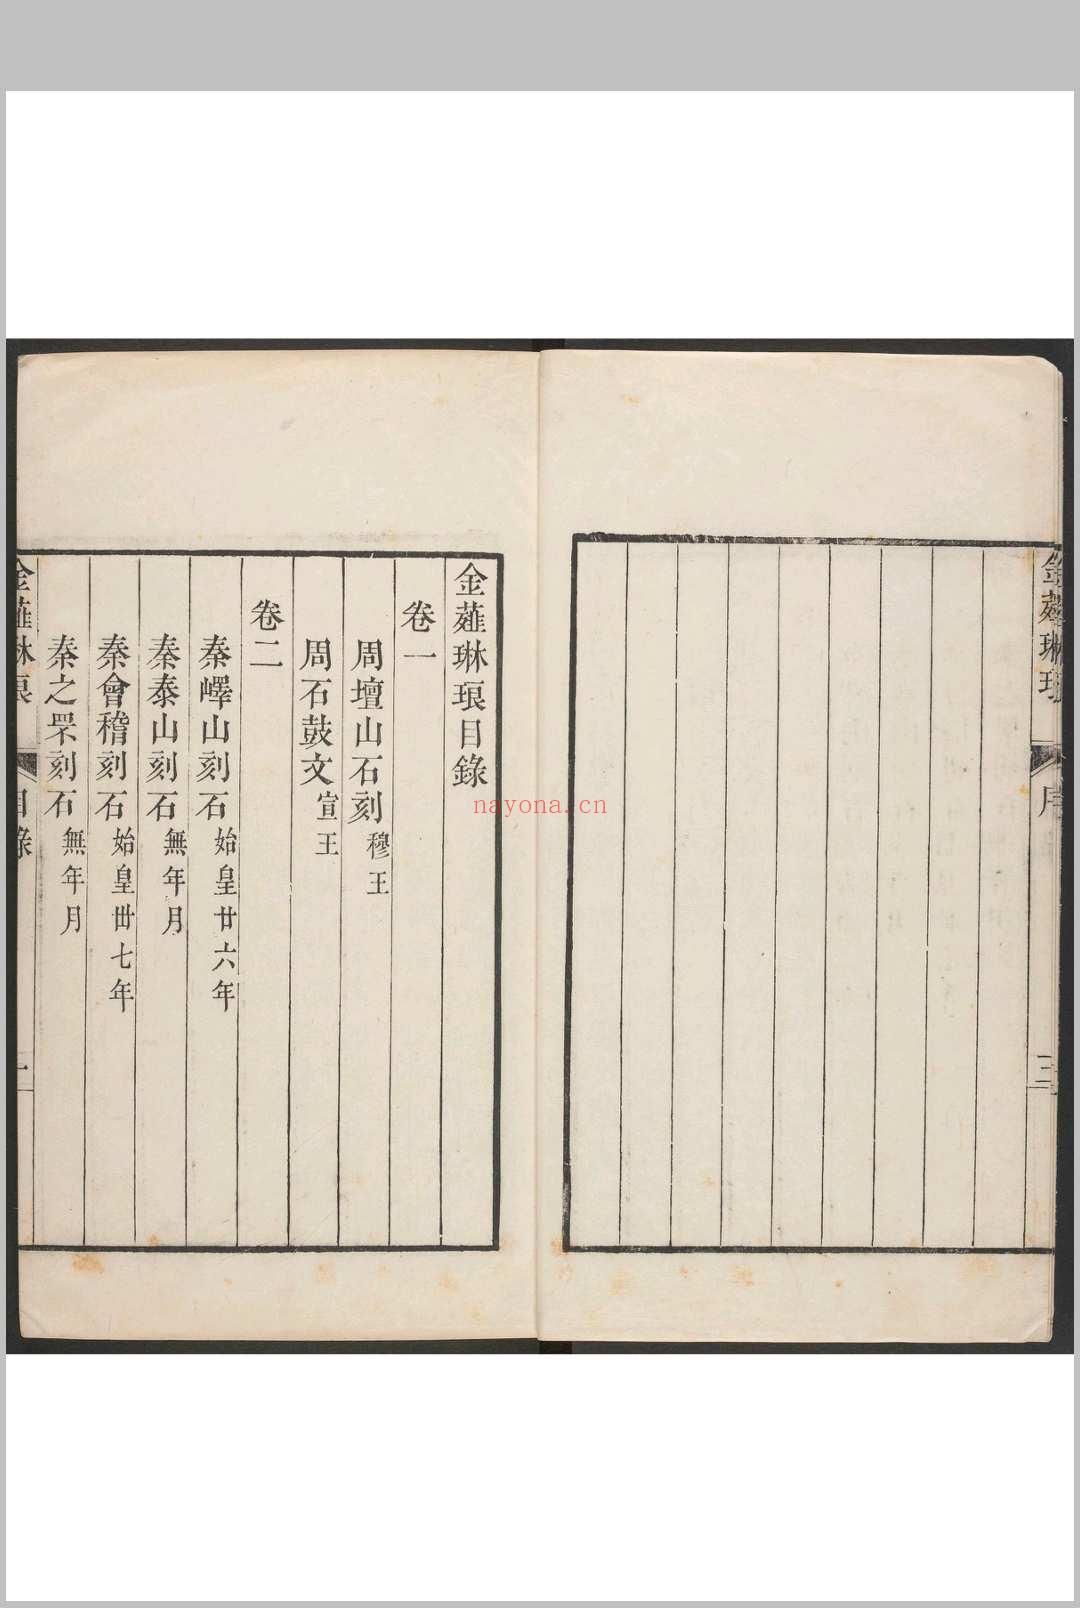 金薤琳琅
序
三
金薤琳琅目錄
卷一
周壇山石刻穆王
周石鼓文宣王
卷二
秦嶧山刻石始皇廿六年
秦泰山刻石無年月
秦會稽刻石始皇丗七年
秦之罘刻石無年月
金薤琳琅
目錄
一
nayona.cn